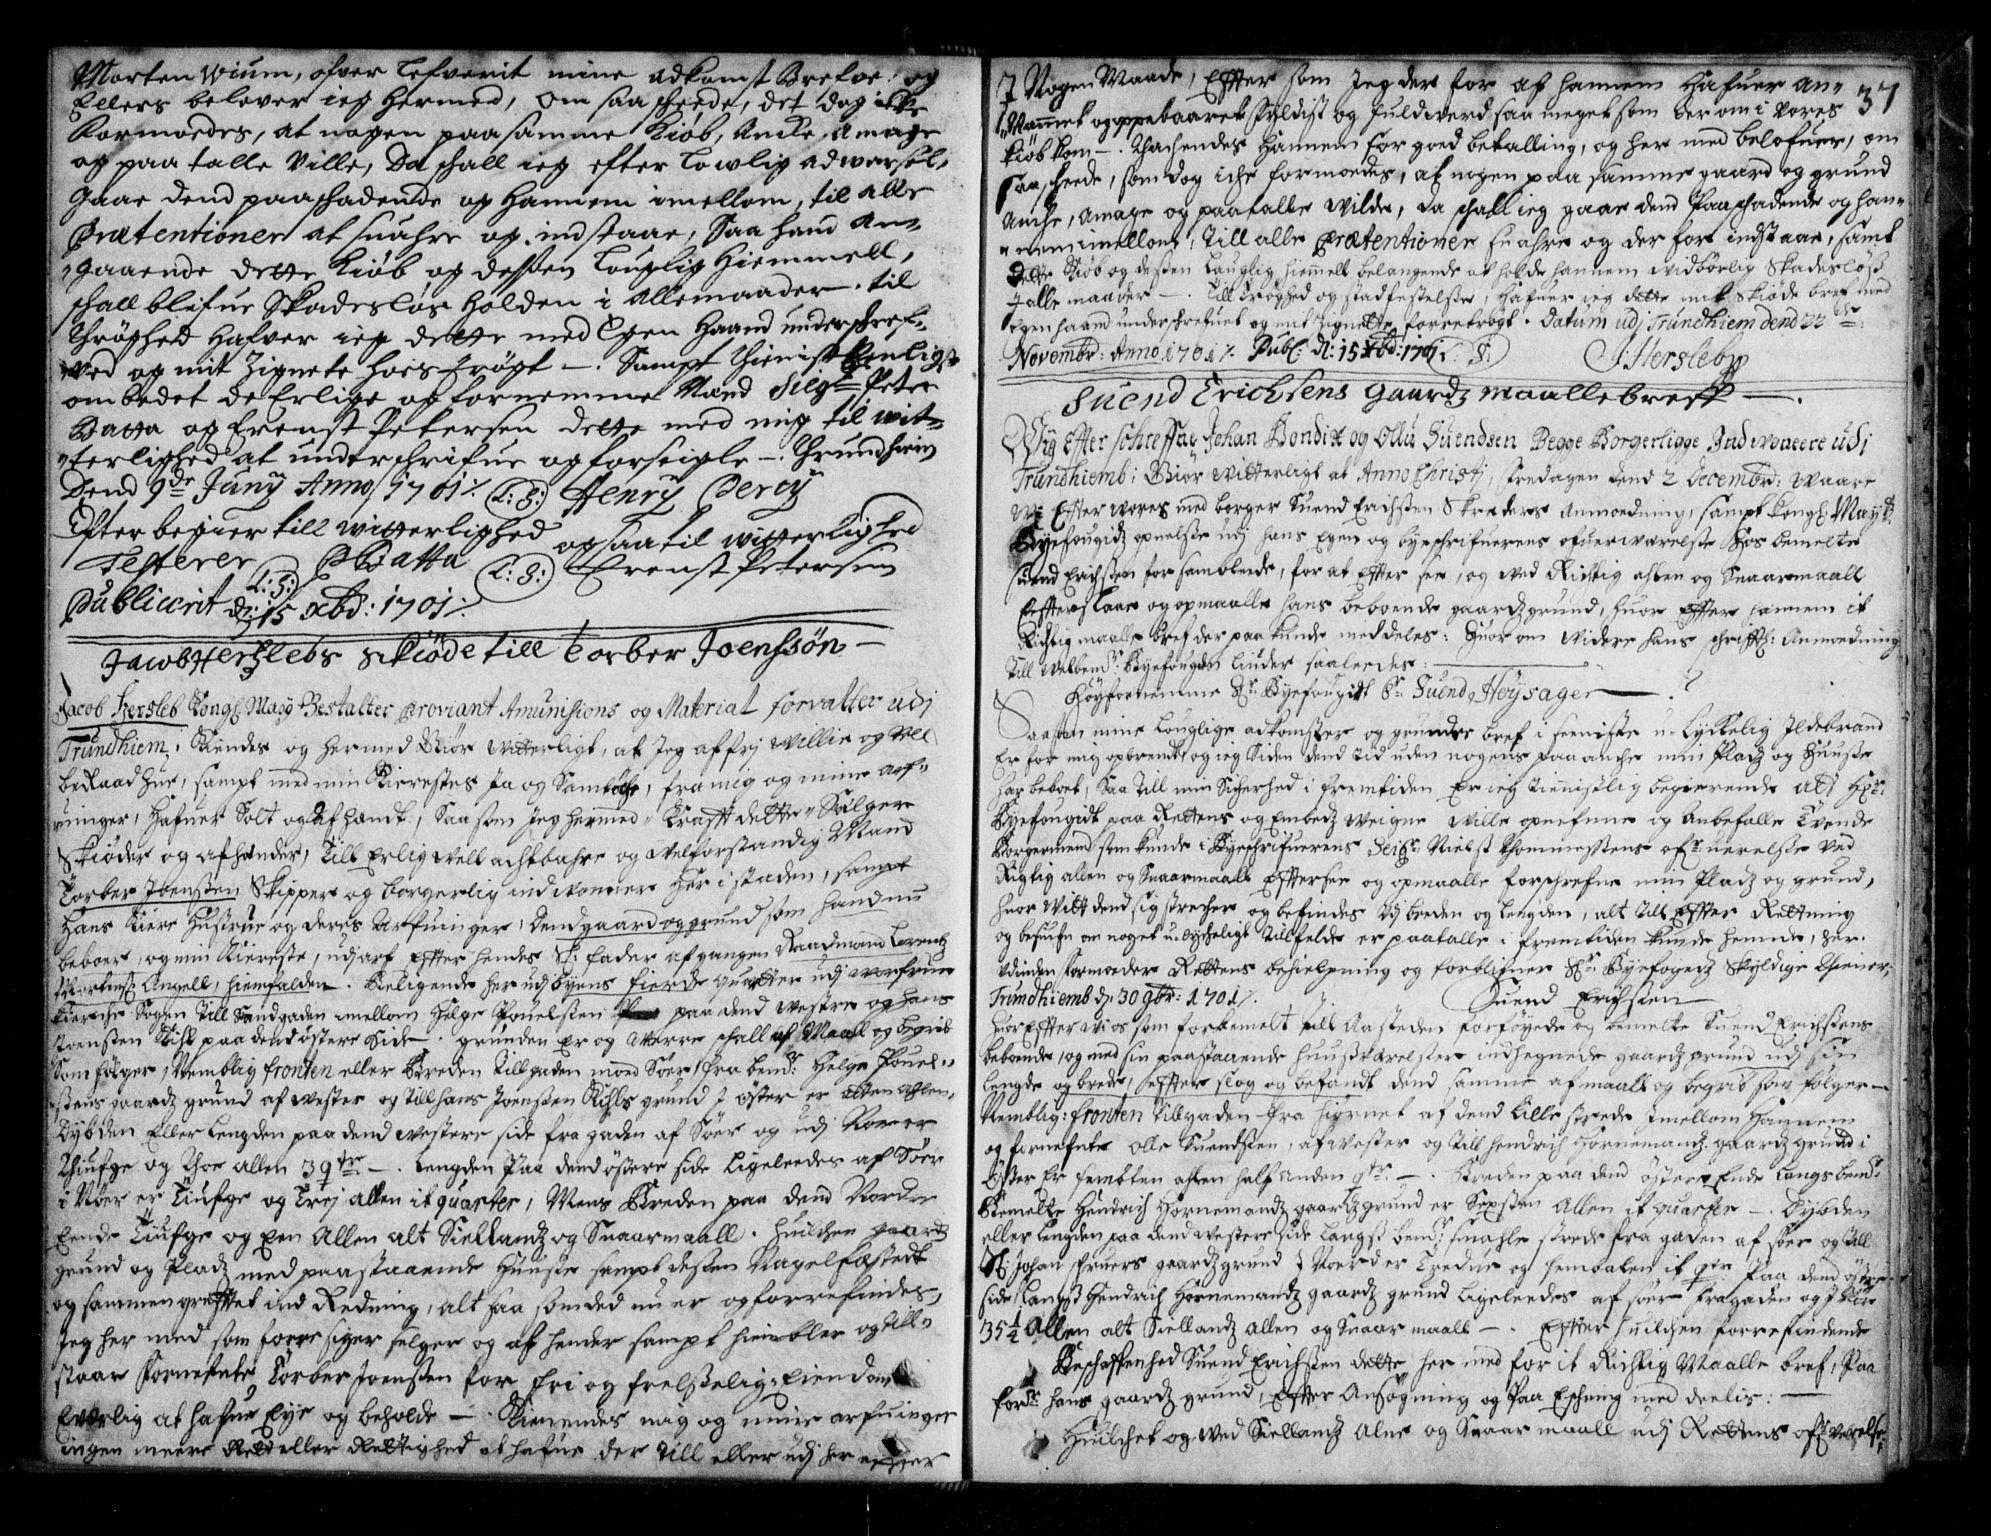 Morten Wium, ofver lefverit mine adkomst Brefve, og
Ellers belover ieg hermed, om saa scheede, det dog icke
formoedes, at nogen paa samme Kiøb, Ancke, amage
og paa talle Ville, Da schall ieg efter Lowlig adwarsel,
gaae dend paaschadende og hannem imellom, til alle
Prætentioner at suahre og indstaae, Saa hand an-
gaaende dette Kiøb og dessen Louglig Hiemmell,
schall blifue Skadesløs holden i Allemaader. til
Thrøghed hafver ieg dette med Egen Haand underschref-
ved og mit Zignete hoes trögt —. Sampt thienist Venligst
ombedet de Erlige og fornemme Mænd Sieg: Peter
Batta og Ernst Petersen dette med mig til wit-
terlighed at underschrifue og forseigle —. Thrundhiem
Dend 9de Juny Anno 1701 /. (L: S:) Henry Percy
Efter begier till witterlighed og saa til witterlighed
Testerer PBatta (L: S:) Ernst Petersen
(L: S:)
Publicerit d: 15 xbd: 1701 /.
Jacob Herslebs Skiøde till Torber Joenssøn —
Jacob Hersleb Kongl May: Bestalter Proviant Amunitions og Material forvalter udj
Trundhiem, Kiendes og hermed Giør Witterligt, at Jeg af frj Willie og Vel
beRaad Hue, sampt med min Kierestes Ja og Samtøche, fra mig og mine arf-
uinger, hafuer Solt og Afhændt, Saa som Jeg hermed i Krafft dette, Sælger
Skiøder og afhænder, Till Erlig well achtbahre og welforstandig Mand
Torber Joenssen Skipper og borgerlig indwoener her i staden, sampt
hans Kiere Hustrue og deres Arfuinger, Dend gaard og grund som hand nu
beboer, og min Kiereste, udj arf effter hendes Sl: fader afgangen Raadmand Lorentz
Mortens: Angell, hiemfalden. Beligende her udj byens fierde quarter udj worfrue
Kierche Sogen till Sandgaden imellom Helge Pouelssen paa dend westre og hans
Joenssen Kihl paa dend østere Side —. grunden er og werre schall af Maall og begrib
Som følger, Nemblig fronten eller Breden till gaden moed Søer, fra bend: Helge Pouel-
sens gaardz grund af wester og till hans Joenssen Kihls grund i øster er
Dybden Eller Lengden paa dend westere side fra gaden af Søer og udj Noer er
Thiufge og Thoe allen 3 qtr —. Lengden Paa dend østere side Ligeleedes af Søer
i Nøer er Tiufge og Trej allen it quarter, Mens Breden paa dend Nordre
Eende Tiufge og een Allen alt Siellandz og Snaarmaall. huilchen gaardz
grund og Pladz med paastaaende Huuse sampt dessen Nagelfastedt
og sammengrefftet ind Redning, alt saa som ded nu er og forrefindes,
Jeg her med som forre siger selger og af hender sampt hiembler og till-
staar fornefnte Torber Joenssen for fri og frelsselig Eiendom
Everlig at hafue Eye og beholde —. Kiennendes mig og mine arfuinger
ingen meere Rett eller Rettighed at hafue der till eller udj her effter
37
J Nogen Maade, Effter som Jeg der for af hannem hafuer an-
Nammet og oppebaaret fyldist og fuldwerd saa meget som der om i vores
Kiøb kom —. Thachendes hannem for goed betalling, og her med belofuer, om
saa scheede, som dog iche formoedes, at nogen paa samme gaard og grund
Anche, amage og paatalle wilde, da schall ieg gaae dend Paaschadende og han-
nem imellom, till alle Prætentioner suahre og der for indstaae, samt
dette Kiøb og dessen Lauglig hiemmelt belangende at holde hannem widbørlig Skadesløss
J alle maader —. Till Trøghed og stadfestelse, hafuer ieg dette mit Skiøde bref med
Egen haand underschrefuet og mit Zignette forretrøgt. Datum udj Trundhiem dend 22de
Novembr: Anno 1701 /. Publ: d: 15 xbd: 1701. (L: S:) J Hersleb
Suend Erichsens Gaardz maalle breff —.
Wy Effter schreffne Johan Bondix og Olle Suendsen Begge Borgerligge Indwoneere udj
Trundhiemb; Giør witterligt at Anno Christj, fredagen dend 2 Decembr: Waare
Wi Effter wores med borger Suend Erichssen Skreders Anmoedning, sampt Kongl: Mayts
Byefougdz opnelsse udj hans Egen og byeschrifuerens ofuerwærelsse hos bemelte
Suend Erichssen forsamblede, for at Effter see, og wed Richtig allen og Snaarmaall
Eefterslaae og opmaalle hans beboende gaardzgrund, huor effter hannem it
Richtig maalle bref der paa kunde meddeles: Huor om widere hans schrifftl: Anmoedning
till Welbemte Byefougden liuder saaleedes:
Høyfornemme Hr Byefougdt Sr Suend Høysager —.
Saasom mine Louglige adkomster og grunde bref i seeniste u-Lyckelig Jldebrand
Er for mig opbrendt, og ieg siden dend tid uden nogens paa anche min Pladz og Huusse
har beboet, Saa till min Sicherhed i fremtiden Er ieg tienistlig begierende att Hr:
Byefougdt paa Rettens og Embedz weigne wille opnefnne og Anbefalle Tvende
Borgermend som kunde i Byeschrifuerens Seigr. Nielss Thommessens ofueruerelsse wed
Rigtig allen og Snaarmaall Efftersee og opmaalle forschrefne min Pladz og grund,
huor witt dend sig strecher og befindes udj breden og lengden, alt till Effter Retning
og befuefn om noget u-lycheligt tilfelde er paafalle i fremtiden kunde hende, her-
udinden formoeder Rettens behielpning og forblifuer Hr. Byefogedz Skyldige thiener.
Trundhiemb d: 30 9br: 1701 /. Suend Erichssen
huoreffter wi os som forbemelt till Aasteden forføyede og bemelte Suend Erichssens
beboende, og med sin paastaaende huussværelsser indhegnede gaardz grund udj sin
lengde og brede, Effter slog og befandt dend samme af maall og begrib som følger —
Nemblig: fronten till gaden fra hiørnet af dend lille stræde imellom hannem
og fornefnte Olle Suendssen, af wester og till Hendrich Hornemandz gaardz grund i
Øster Er femten allen half anden qtr. —. Breden paa dend østere Ende langs bend:
bemelte Hendrich Hornemandz gaardzgrund er Sexsten Allen it quarter —. Dybden
eller lengden paa dend westere side langs bend: smahle stræde fra gaden af søer og till
Sl: Johan schriuers gaardz grund i Noerd er Tredue og fem allen it qtr. Paa dend østre
side langs Hendrich Hornemandz gaardz grund ligeleedes af søer fra gaden og i Nør
35 ½ Allen alt Siellandz allen og Snaar maall —. Effter huilchen forrefindende
Beschaffenhed Suend Erichssen dette her med for it Richtig Maalle bref, Paa
forbte: hans gaardz grund, Effter Ansøgning og Paa Eschening med deelis: —
Huilchet og wed Siellandz Alne og Snaar maall udj Rettens ofr: værelse